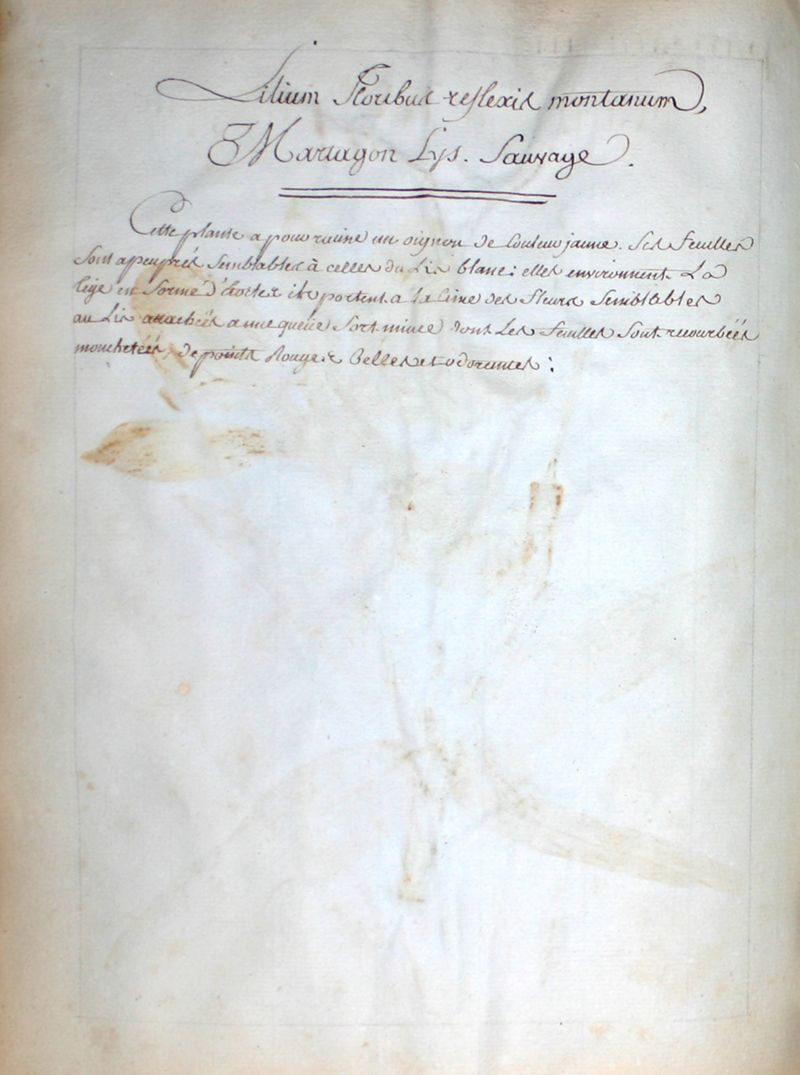 Lilium Floribus reflexis montanum,
Martagon Lys. Sauvage.
Cette plante a pour racine un oignon de Couleur jaune. Ses feuilles
Sont apeuprés Semblables à celles du Lis blanc: elles environnent La
tige en forme d'Etoiles ils portent a la Cime des fleurs Semblables
au Lis attachées a une queüe fort mince dont Les feuilles Sont recourbées
mouchetées, de points Rouges Belles et odorantes: